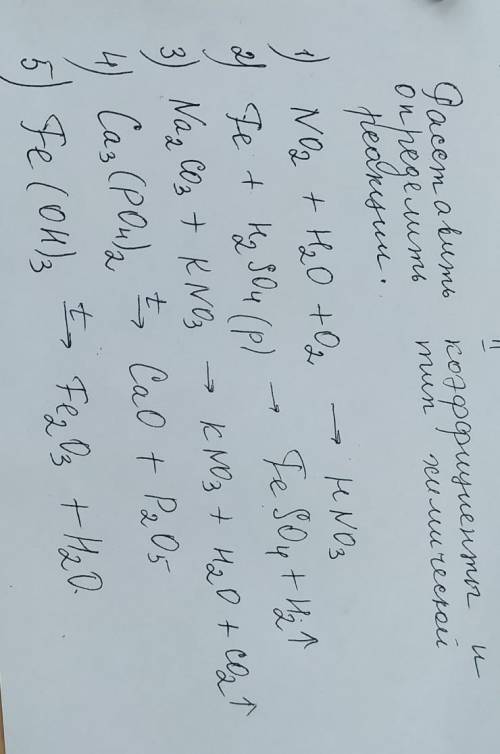 Расставить коэффициенты и
определить тип химической
реакции.
1) NO₂ + H₂O + O₂ → HNO₃
2) Fe + H₂SO₄(p) → FeSO₄ + H₂↑
3) Na₂CO₃ + KNO₃ → KNO₃ + H₂O + CO₂↑
4) Ca₃(PO₄)₂ t→ CaO + P₂O₅
5) Fe(OH)₃ t→ Fe₂O₃ + H₂O.